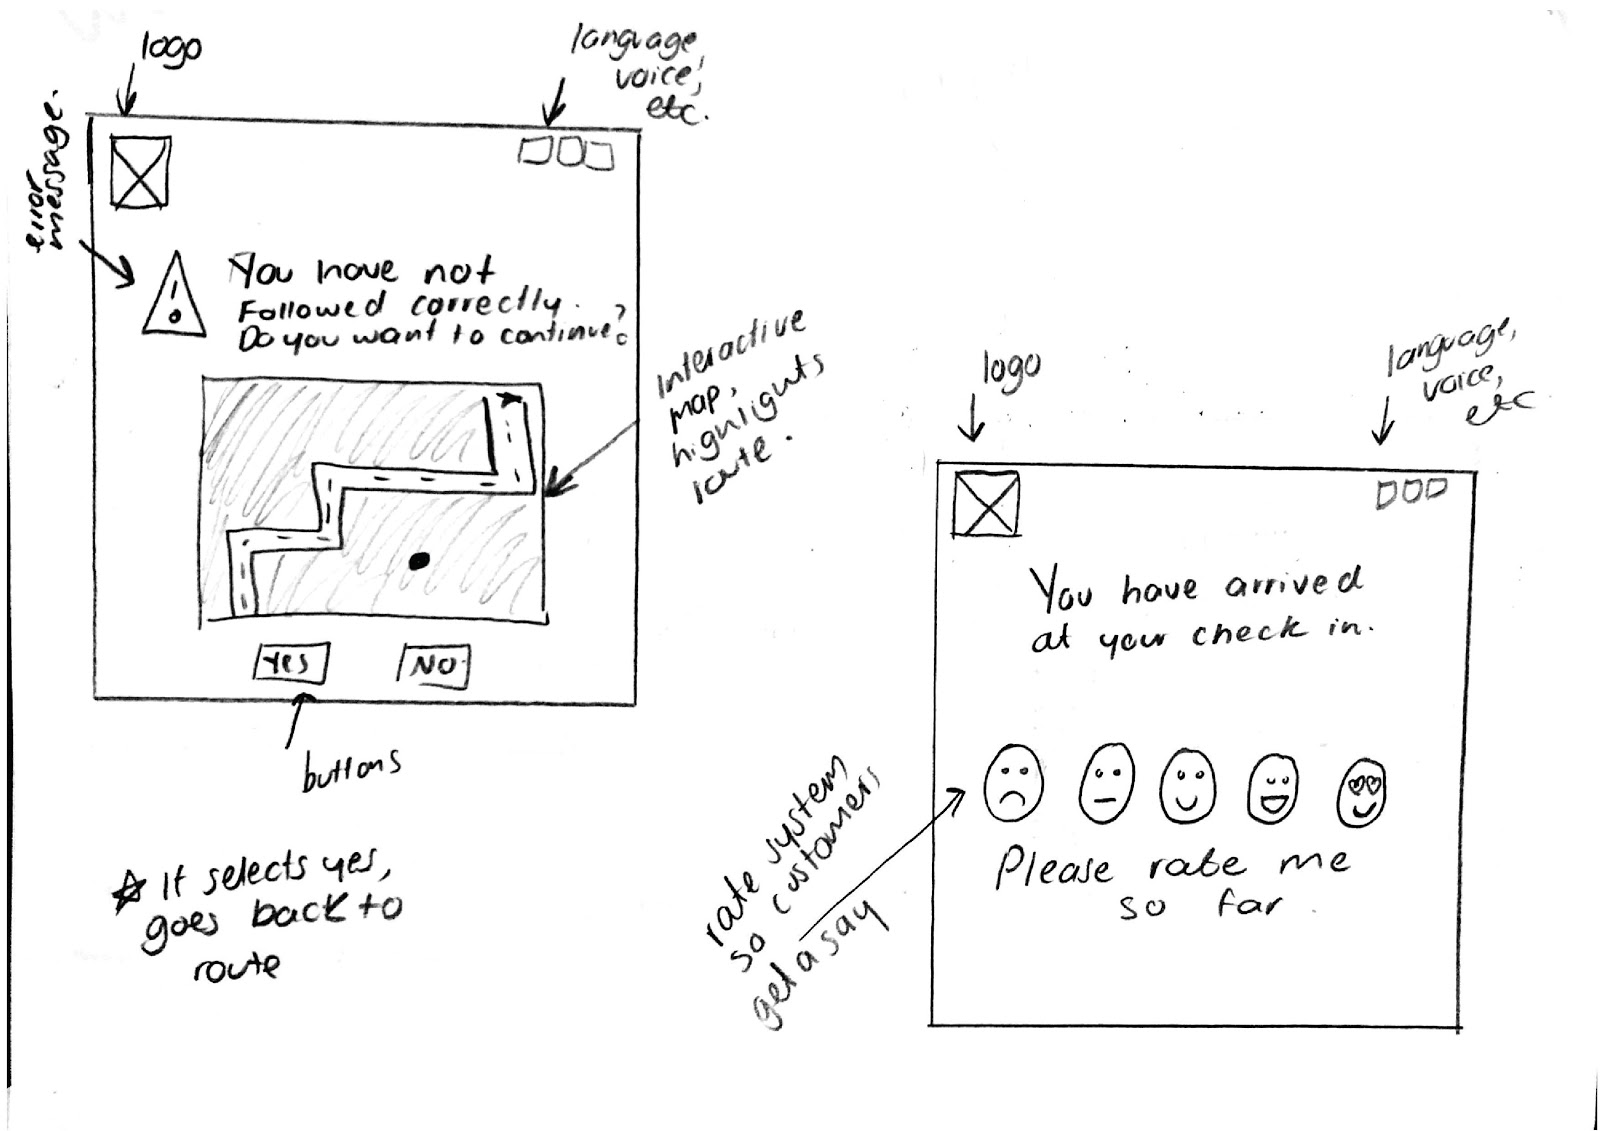 logo
language,
voice,
etc.
error
message.
You have not
Followed correctly.
Do you want to continue?
interactive
map,
highlights
route.
Yes
No
buttons
It selects yes,
goes back to
route
logo
language,
voice,
etc
You have arrived
at your check in.
rate system,
so customers
get a say
Please rate me
so far.